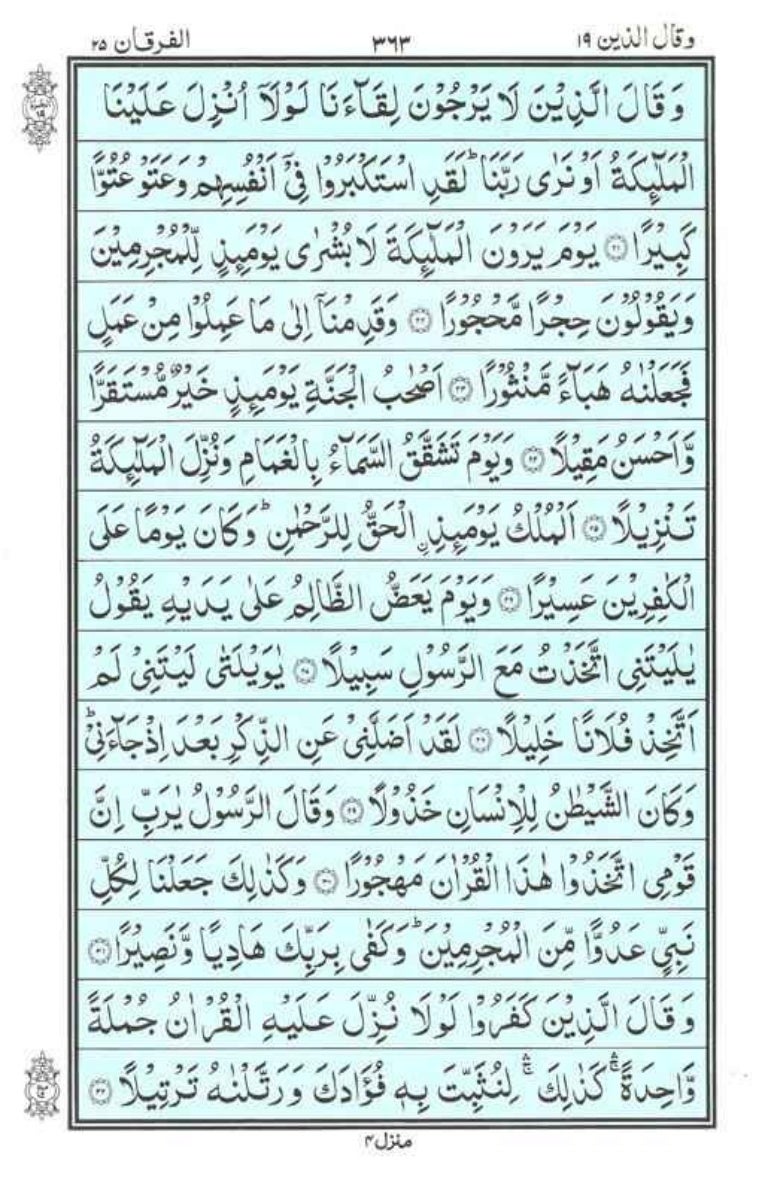 وقال الذين ۱۹
۳۶۳
الفرقان ۲۵
وَقَالَ الَّذِيْنَ لَا يَرْجُوْنَ لِقَآءَنَا لَوْلَاۤ اُنْزِلَ عَلَيْنَا
الْمَلٰٓئِكَةُ اَوْ نَرٰى رَبَّنَا ؕ لَقَدِ اسْتَكْبَرُوْا فِيْۤ اَنْفُسِهِمْ وَعَتَوْ عُتُوًّا
كَبِيْرًا ۝۲۱ يَوْمَ يَرَوْنَ الْمَلٰٓئِكَةَ لَا بُشْرٰى يَوْمَئِذٍ لِّلْمُجْرِمِيْنَ
وَيَقُوْلُوْنَ حِجْرًا مَّحْجُوْرًا ۝۲۲ وَقَدِمْنَاۤ اِلٰى مَا عَمِلُوْا مِنْ عَمَلٍ
فَجَعَلْنٰهُ هَبَآءً مَّنْثُوْرًا ۝۲۳ اَصْحٰبُ الْجَنَّةِ يَوْمَئِذٍ خَيْرٌ مُّسْتَقَرًّا
وَّاَحْسَنُ مَقِيْلًا ۝۲۴ وَيَوْمَ تَشَقَّقُ السَّمَآءُ بِالْغَمَامِ وَنُزِّلَ الْمَلٰٓئِكَةُ
تَنْزِيْلًا ۝۲۵ اَلْمُلْكُ يَوْمَئِذِ ۣالْحَقُّ لِلرَّحْمٰنِ ؕ وَكَانَ يَوْمًا عَلَى
الْكٰفِرِيْنَ عَسِيْرًا ۝۲۶ وَيَوْمَ يَعَضُّ الظَّالِمُ عَلٰى يَدَيْهِ يَقُوْلُ
يٰلَيْتَنِى اتَّخَذْتُ مَعَ الرَّسُوْلِ سَبِيْلًا ۝۲۷ يٰوَيْلَتٰى لَيْتَنِيْ لَمْ
اَتَّخِذْ فُلَانًا خَلِيْلًا ۝۲۸ لَقَدْ اَضَلَّنِيْ عَنِ الذِّكْرِ بَعْدَ اِذْ جَآءَنِيْ ؕ
وَكَانَ الشَّيْطٰنُ لِلْاِنْسَانِ خَذُوْلًا ۝۲۹ وَقَالَ الرَّسُوْلُ يٰرَبِّ اِنَّ
قَوْمِى اتَّخَذُوْا هٰذَا الْقُرْاٰنَ مَهْجُوْرًا ۝۳۰ وَكَذٰلِكَ جَعَلْنَا لِكُلِّ
نَبِيٍّ عَدُوًّا مِّنَ الْمُجْرِمِيْنَ ؕ وَكَفٰى بِرَبِّكَ هَادِيًا وَّنَصِيْرًا ۝۳۱
وَقَالَ الَّذِيْنَ كَفَرُوْا لَوْلَا نُزِّلَ عَلَيْهِ الْقُرْاٰنُ جُمْلَةً
وَّاحِدَةً ۛۚ كَذٰلِكَ ۛۚ لِنُثَبِّتَ بِهٖ فُؤَادَكَ وَرَتَّلْنٰهُ تَرْتِيْلًا ۝۳۲
منزل ۴